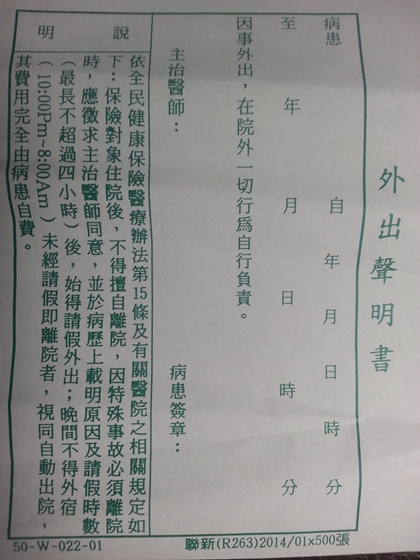 外出聲明書
病患　自　年　月　日　時　分
至　年　月　日　時　分
因事外出，在院外一切行為自行負責。
主治醫師：　病患簽章：
說明
依全民健康保險醫療辦法第15條及有關醫院之相關規定如
下：保險對象住院後，不得擅自離院，因特殊事故必須離院
時，應徵求主治醫師同意，並於病歷上載明原因及請假時數
（最長不超過四小時）後，始得請假外出；晚間不得外宿
（10:00Pm~8:00Am）未經請假即離院者，視同自動出院，
其費用完全由病患自費。
50-W-022-01
聯新(R263)2014/01x500張